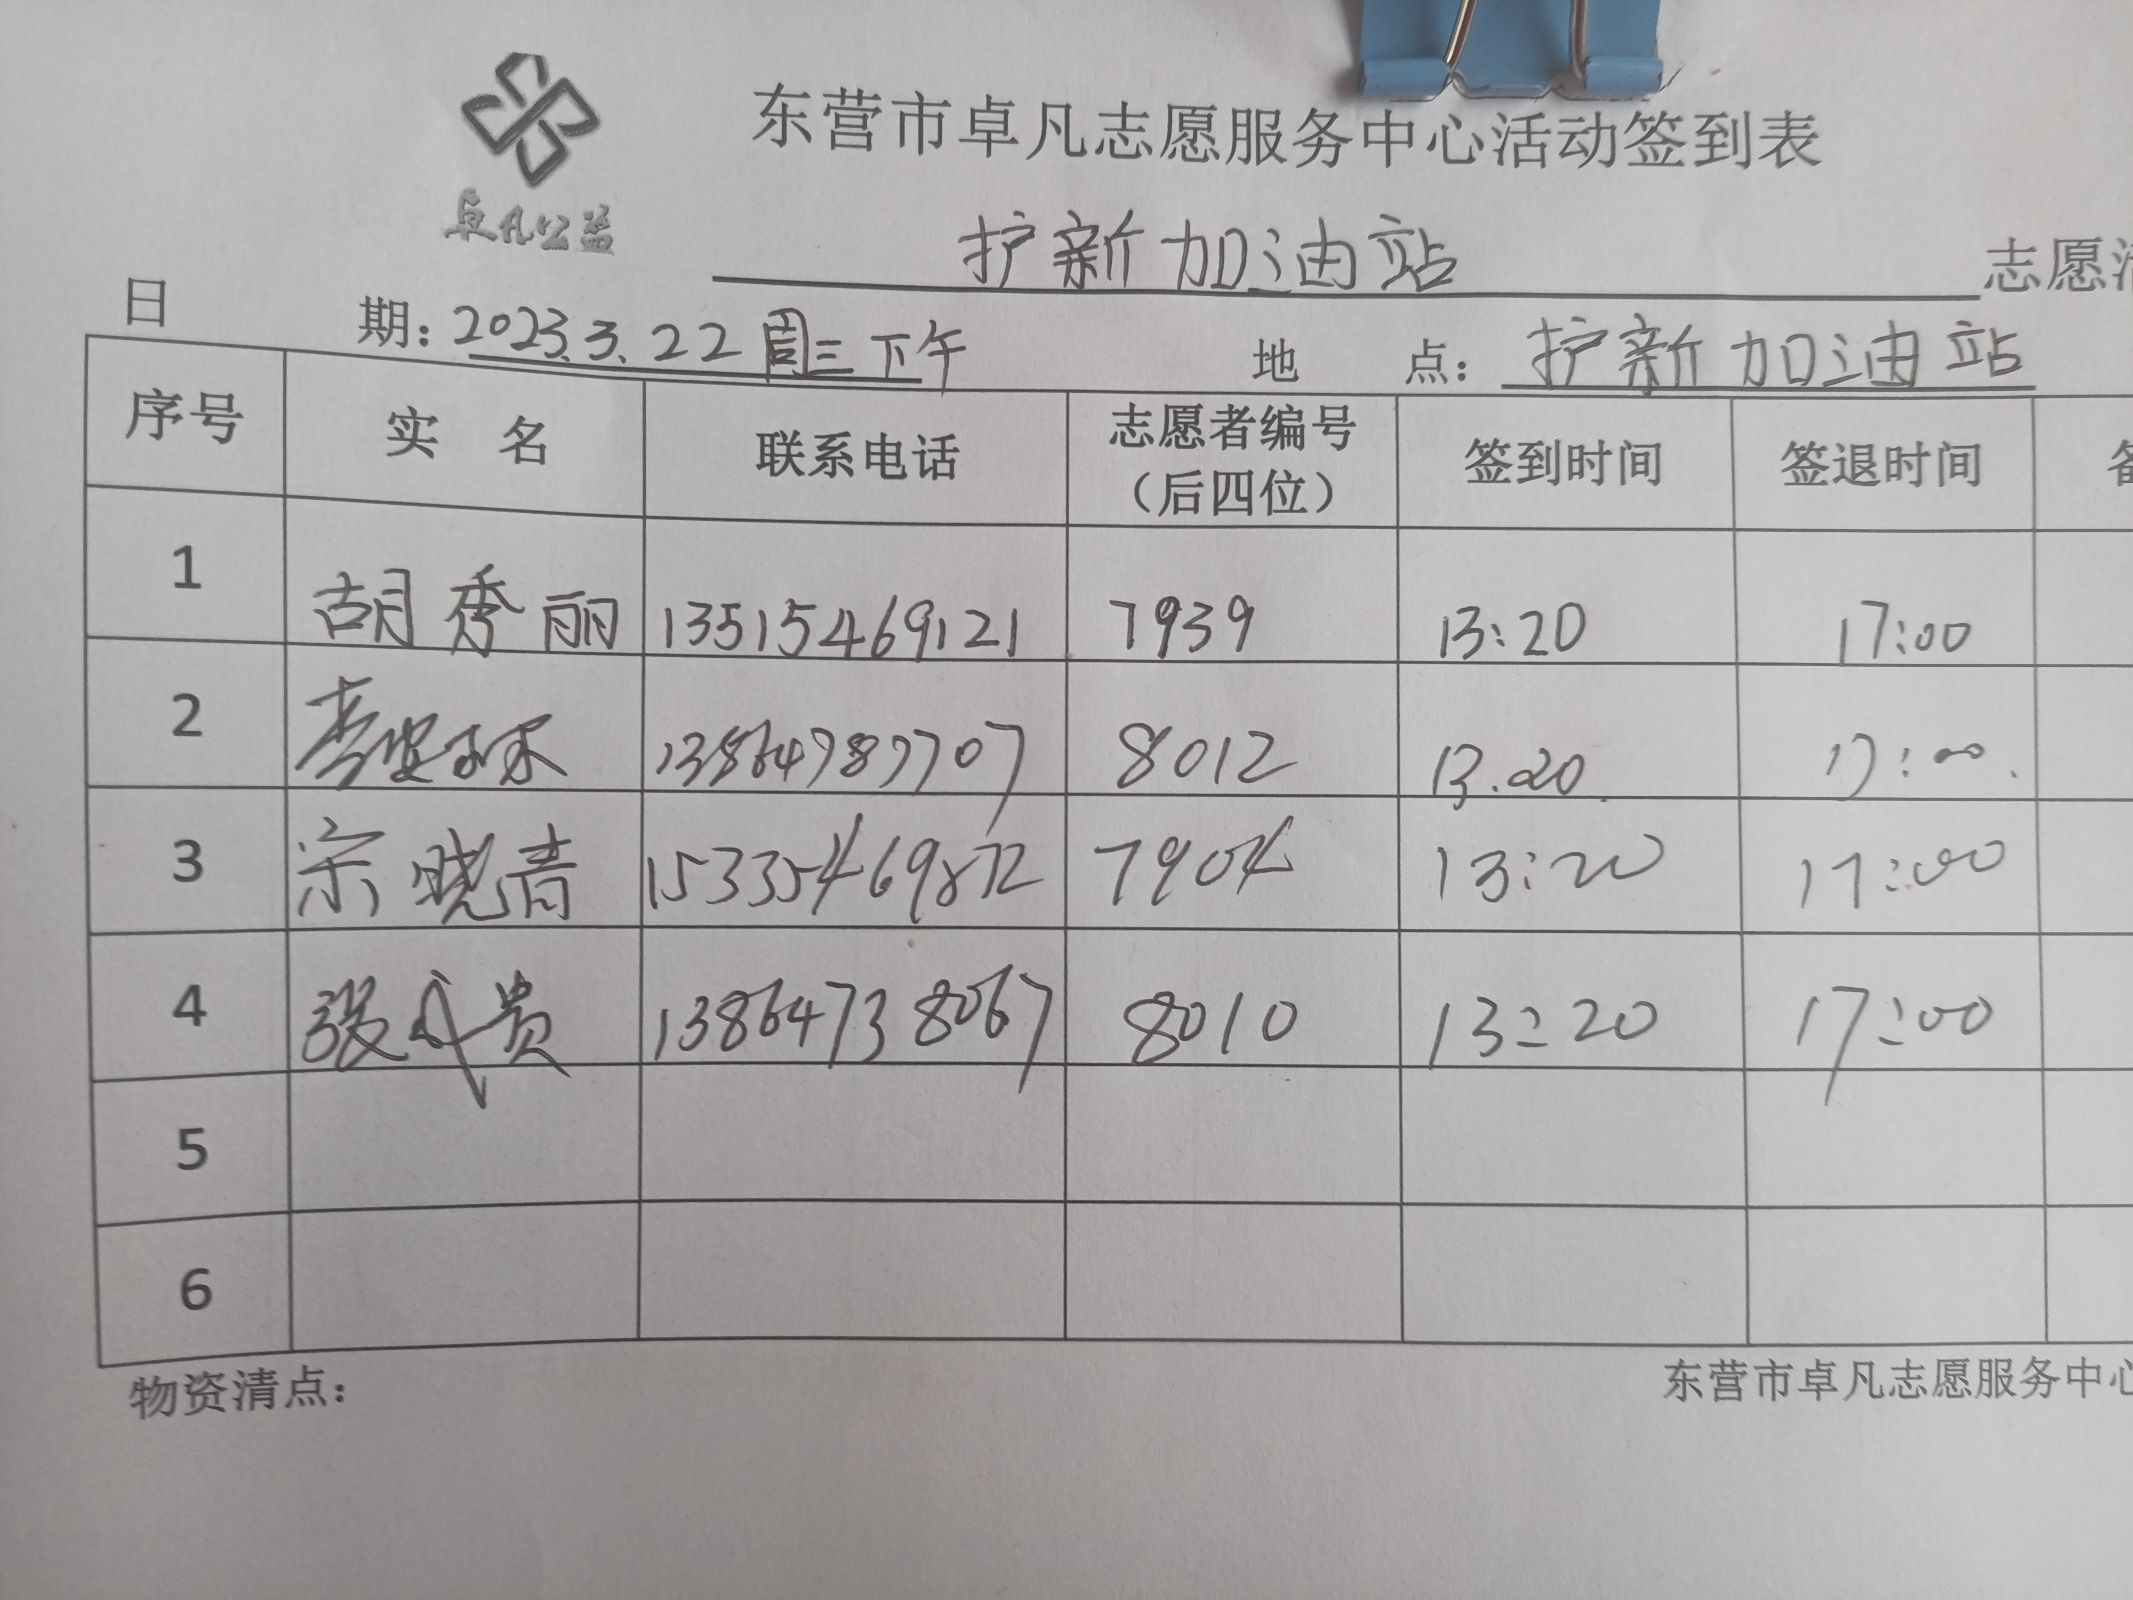 东营市卓凡志愿服务中心活动签到表
卓凡公益
护新加油站 志愿活
日 期: 2023.3.22 周三下午 地 点: 护新加油站
序号 实 名 联系电话 志愿者编号（后四位） 签到时间 签退时间 备
1 胡秀丽 13515469121 7939 13:20 17:00
2 李 13864787707 8012 13.20 17:00.
3 宗晓青 15335469872 7904 13:20 17:00
4 张成贵 13864738067 8010 13:20 17:00
5
6
物资清点: 东营市卓凡志愿服务中心